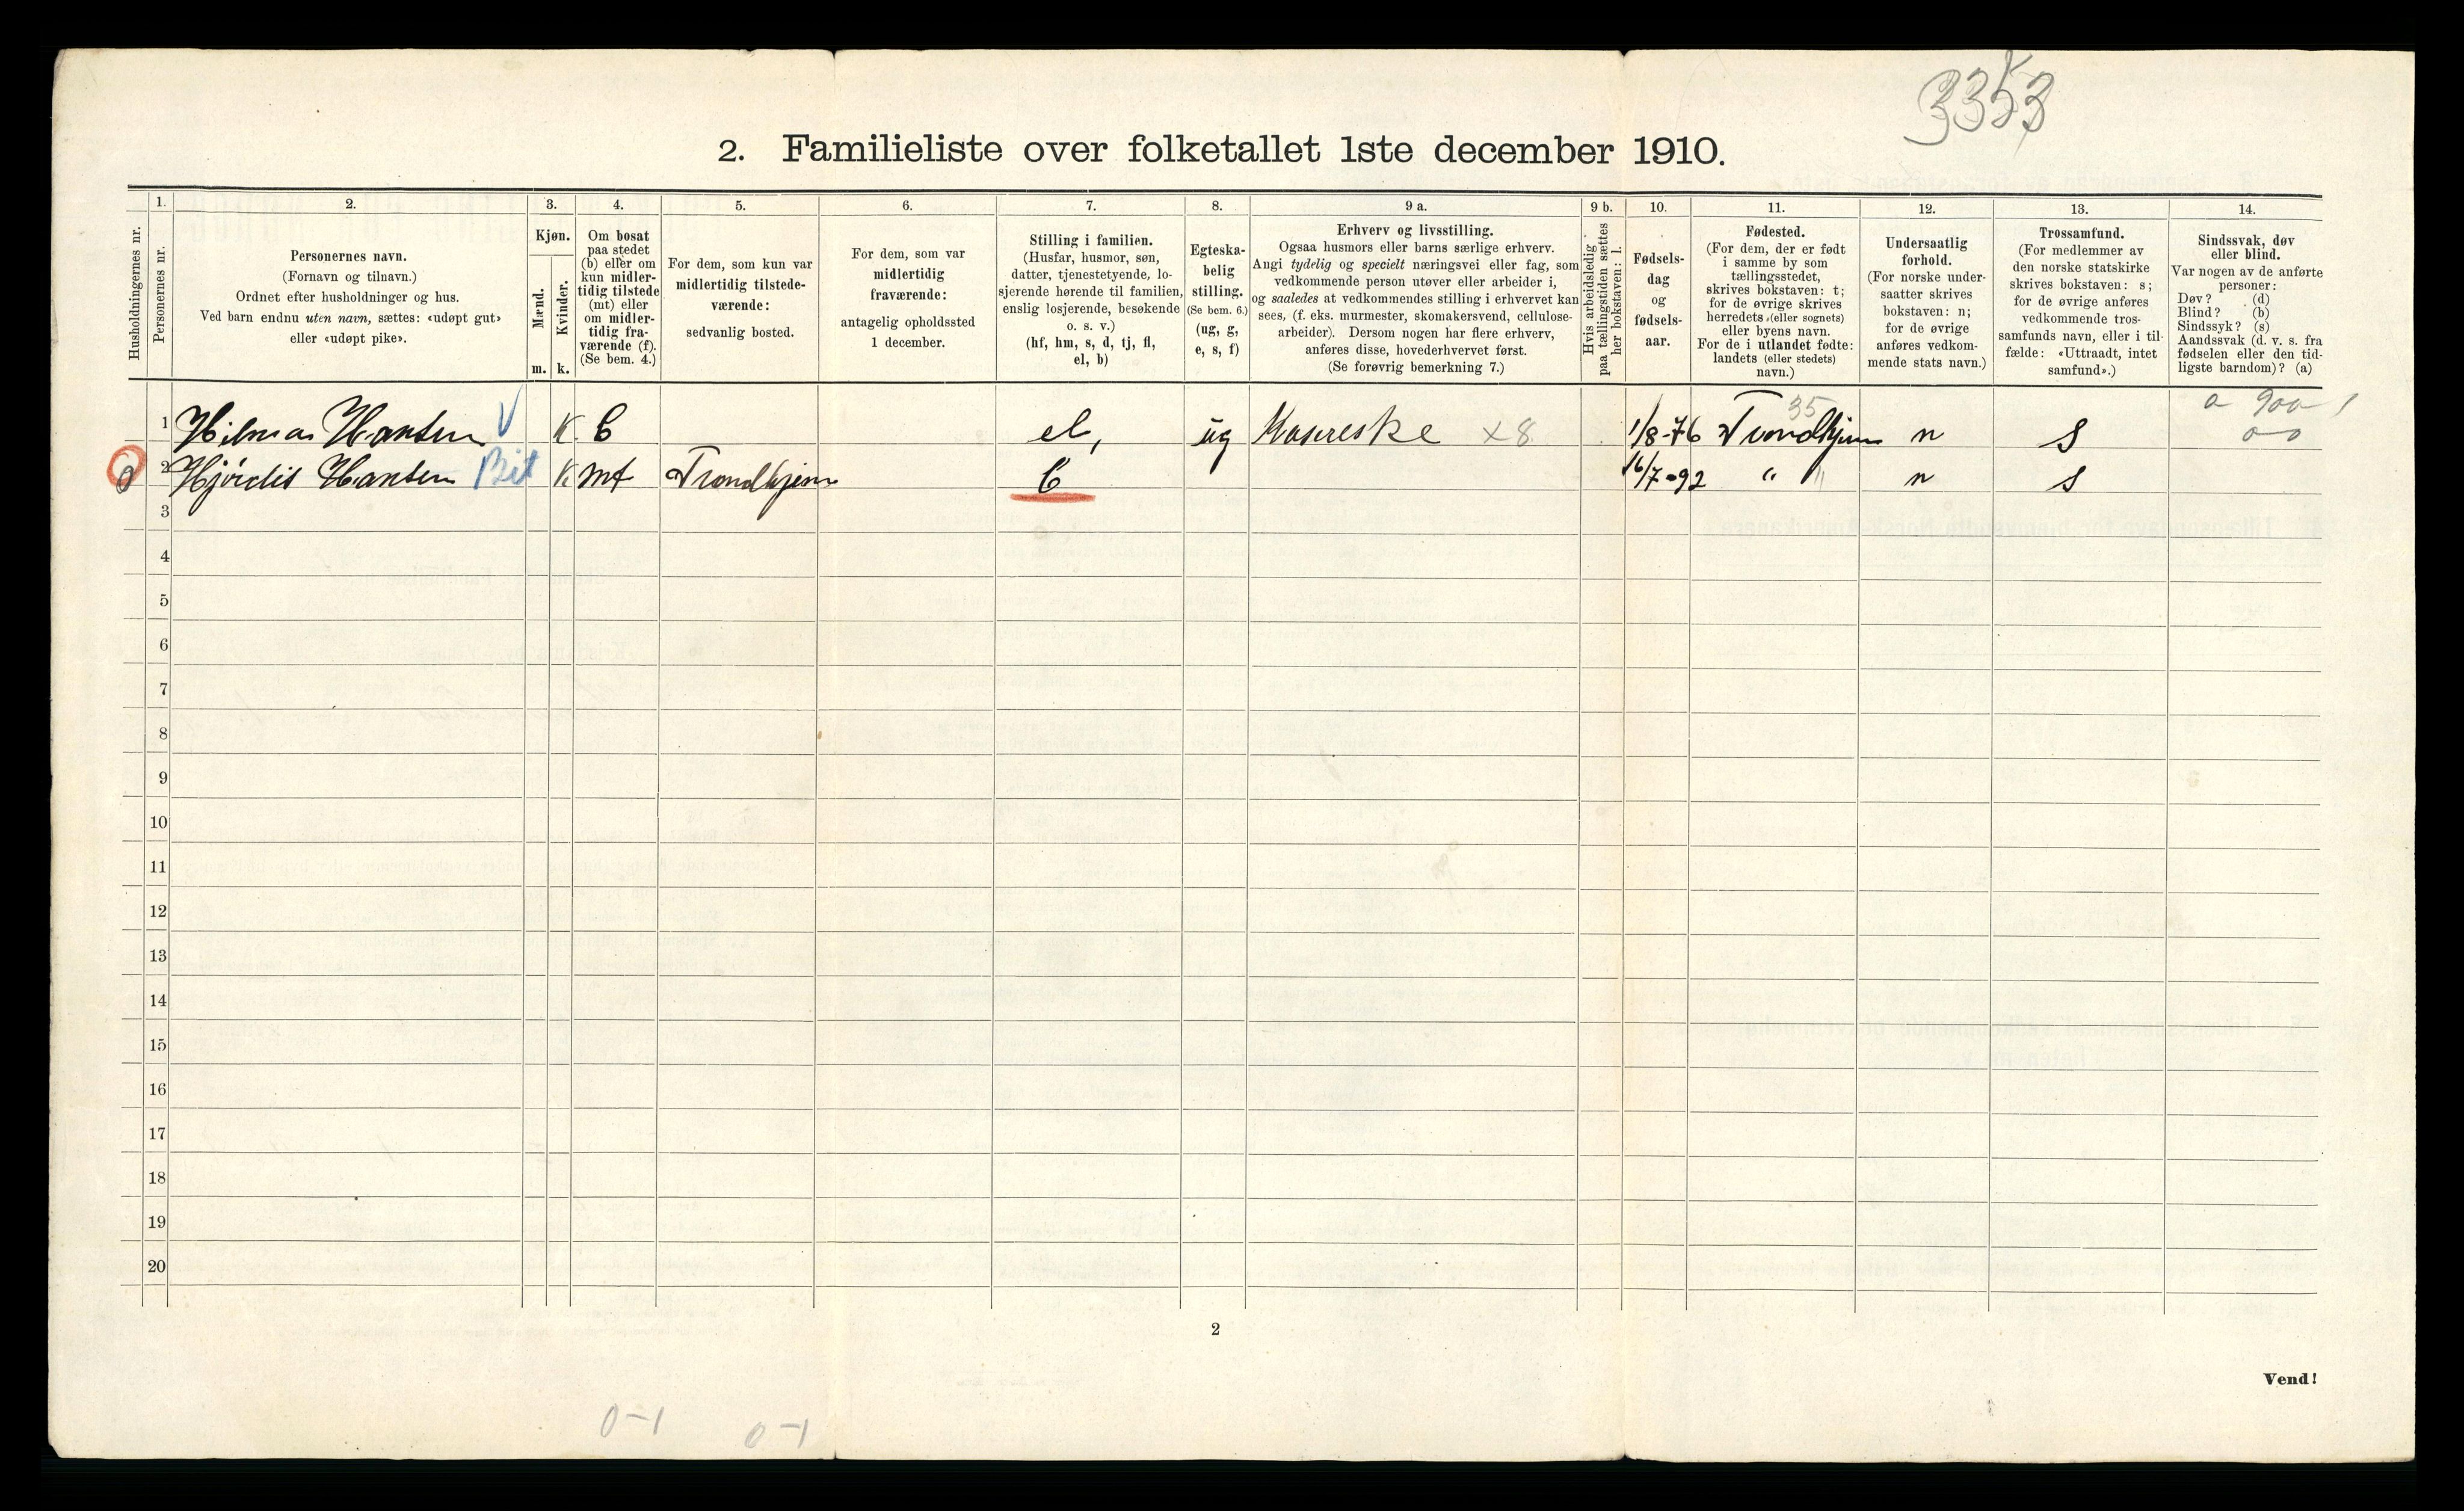 3353
2. Familieliste over folketallet 1ste december 1910.
Husholdningernes nr.
1.
Personernes nr.
2.
Personernes navn.
(Fornavn og tilnavn.)
Ordnet efter husholdninger og hus.
Ved barn endnu uten navn, sættes: «udøpt gut»
eller «udøpt pike».
3.
Kjøn.
Mænd.
Kvinder.
m. k.
4.
Om bosat
paa stedet
(b) eller om
kun midler-
tidig tilstede
(mt) eller
om midler-
tidig fra-
værende (f).
(Se bem. 4.)
5.
For dem, som kun var
midlertidig tilstede-
værende:
sedvanlig bosted.
6.
For dem, som var
midlertidig
fraværende:
antagelig opholdssted
1 december.
7.
Stilling i familien.
(Husfar, husmor, søn,
datter, tjenestetyende, lo-
sjerende hørende til familien,
enslig losjerende, besøkende
o. s. v.)
(hf, hm, s, d, tj, fl,
el, b)
8.
Egteska-
belig
stilling.
(Se bem. 6.)
(ug, g,
e, s, f)
9 a.
Erhverv og livsstilling.
Ogsaa husmors eller barns særlige erhverv.
Angi tydelig og specielt næringsvei eller fag, som
vedkommende person utøver eller arbeider i,
og saaledes at vedkommendes stilling i erhvervet kan
sees, (f. eks. murmester, skomakersvend, cellulose-
arbeider). Dersom nogen har flere erhverv,
anføres disse, hovederhvervet først.
(Se forøvrig bemerkning 7.)
9 b.
Hvis arbeidsledig
paa tællingstiden sættes
her bokstaven: l.
10.
Fødsels-
dag
og
fødsels-
aar.
11.
Fødested.
(For dem, der er født
i samme by som
tællingsstedet,
skrives bokstaven: t;
for de øvrige skrives
herredets (eller sognets)
eller byens navn.
For de i utlandet fødte:
landets (eller stedets)
navn.)
12.
Undersaatlig
forhold.
(For norske under-
saatter skrives
bokstaven: n;
for de øvrige
anføres vedkom-
mende stats navn.)
13.
Trossamfund.
(For medlemmer av
den norske statskirke
skrives bokstaven: s;
for de øvrige anføres
vedkommende tros-
samfunds navn, eller i til-
fælde: «Uttraadt, intet
samfund».)
14.
Sindssvak, døv
eller blind.
Var nogen av de anførte
personer:
Døv? (d)
Blind? (b)
Sindssyk? (s)
Aandssvak (d. v. s. fra
fødselen eller den tid-
ligste barndom)? (a)
35
1 Hilma Hansen V K b el, ug x8 1/8-76 Trondhjem n s
2 Hjördis Hansen K mt Trondhjem b 16/7-92 " " n s
3
4
5
6
7
8
9
10
11
12
13
14
15
16
17
18
19
20
2
Vend!
0-1 0-1